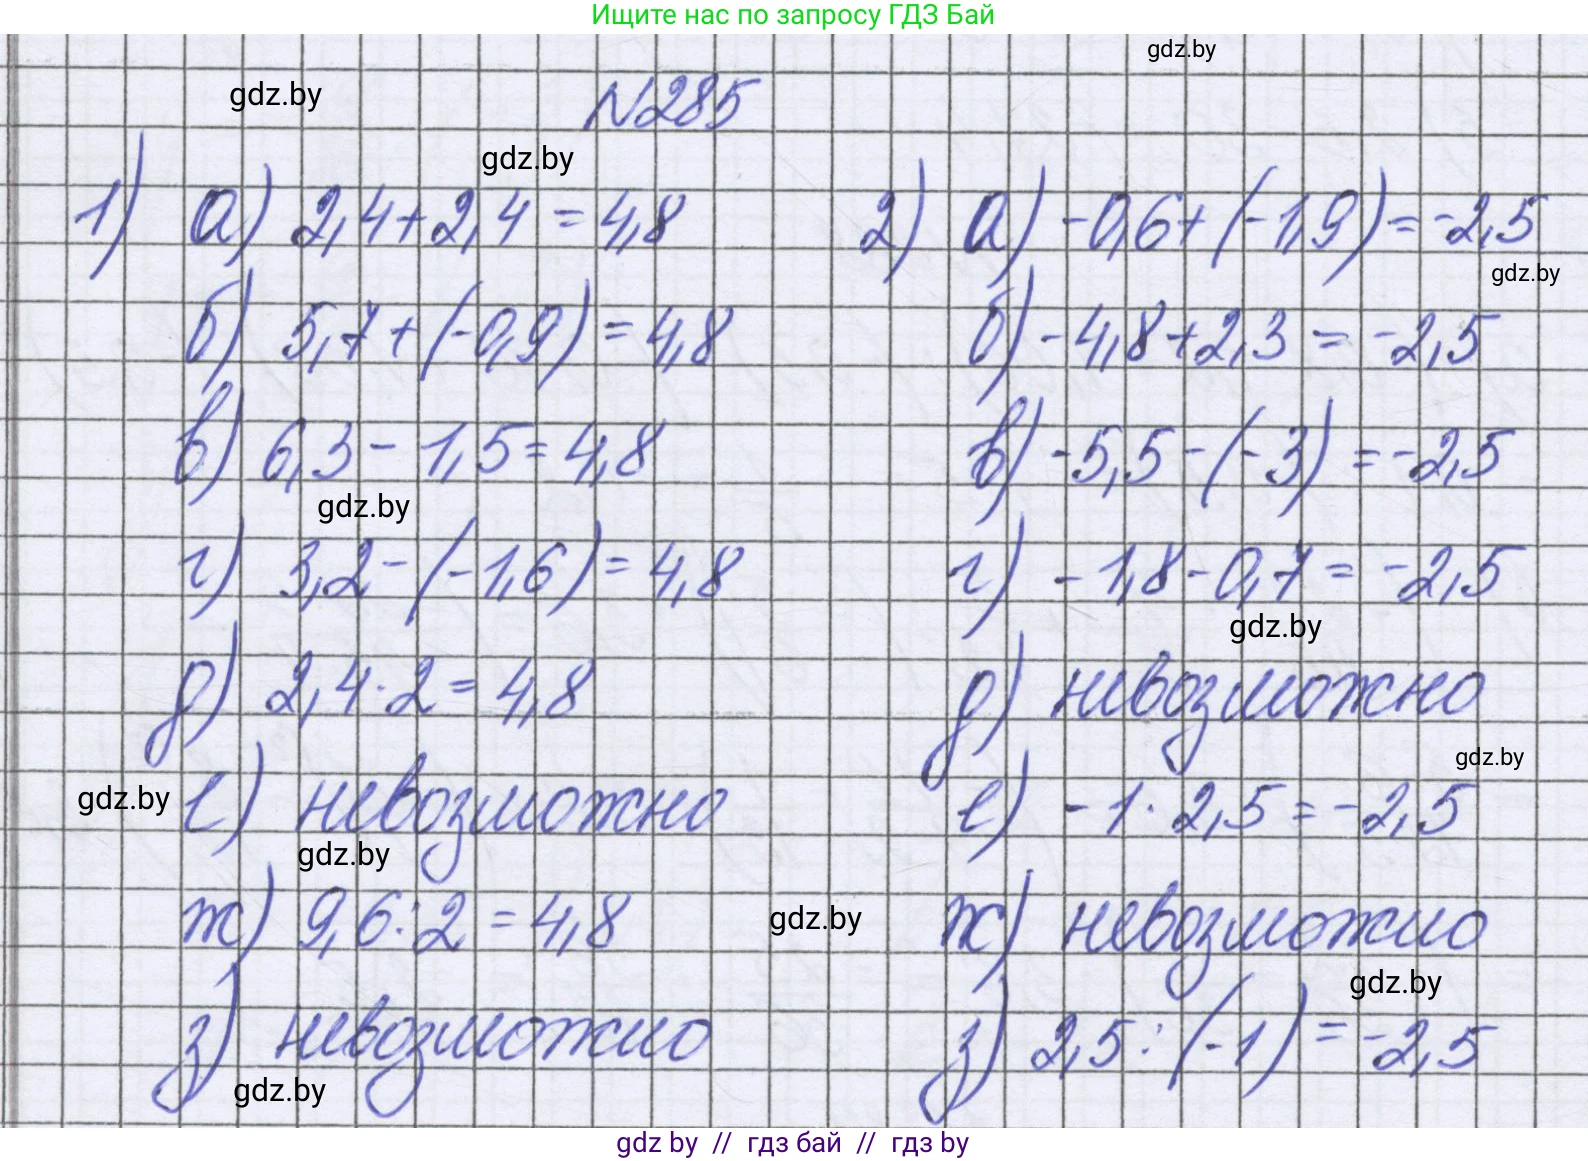 Ищите нас по запросу ГДЗ Бай
gdz.by
gdz.by
№285
gdz.by
1) а) 2,4+2,4=4,8
2) а) -0,6+(-1,9)=-2,5
gdz.by
б) 5,7+(-0,9)=4,8
б) -4,8+2,3=-2,5
в) 6,3-1,5=4,8
в) -5,5-(-3)=-2,5
gdz.by
г) 3,2-(-1,6)=4,8
г) -1,8-0,7=-2,5
gdz.by
д) 2,4·2=4,8
д) невозможно
gdz.by
gdz.by
е) невозможно
е) -1·2,5=-2,5
gdz.by
ж) 9,6:2=4,8
gdz.by
ж) невозможно
gdz.by
з) невозможно
з) 2,5:(-1)=-2,5
gdz.by
gdz by // гдз бай // гдз by